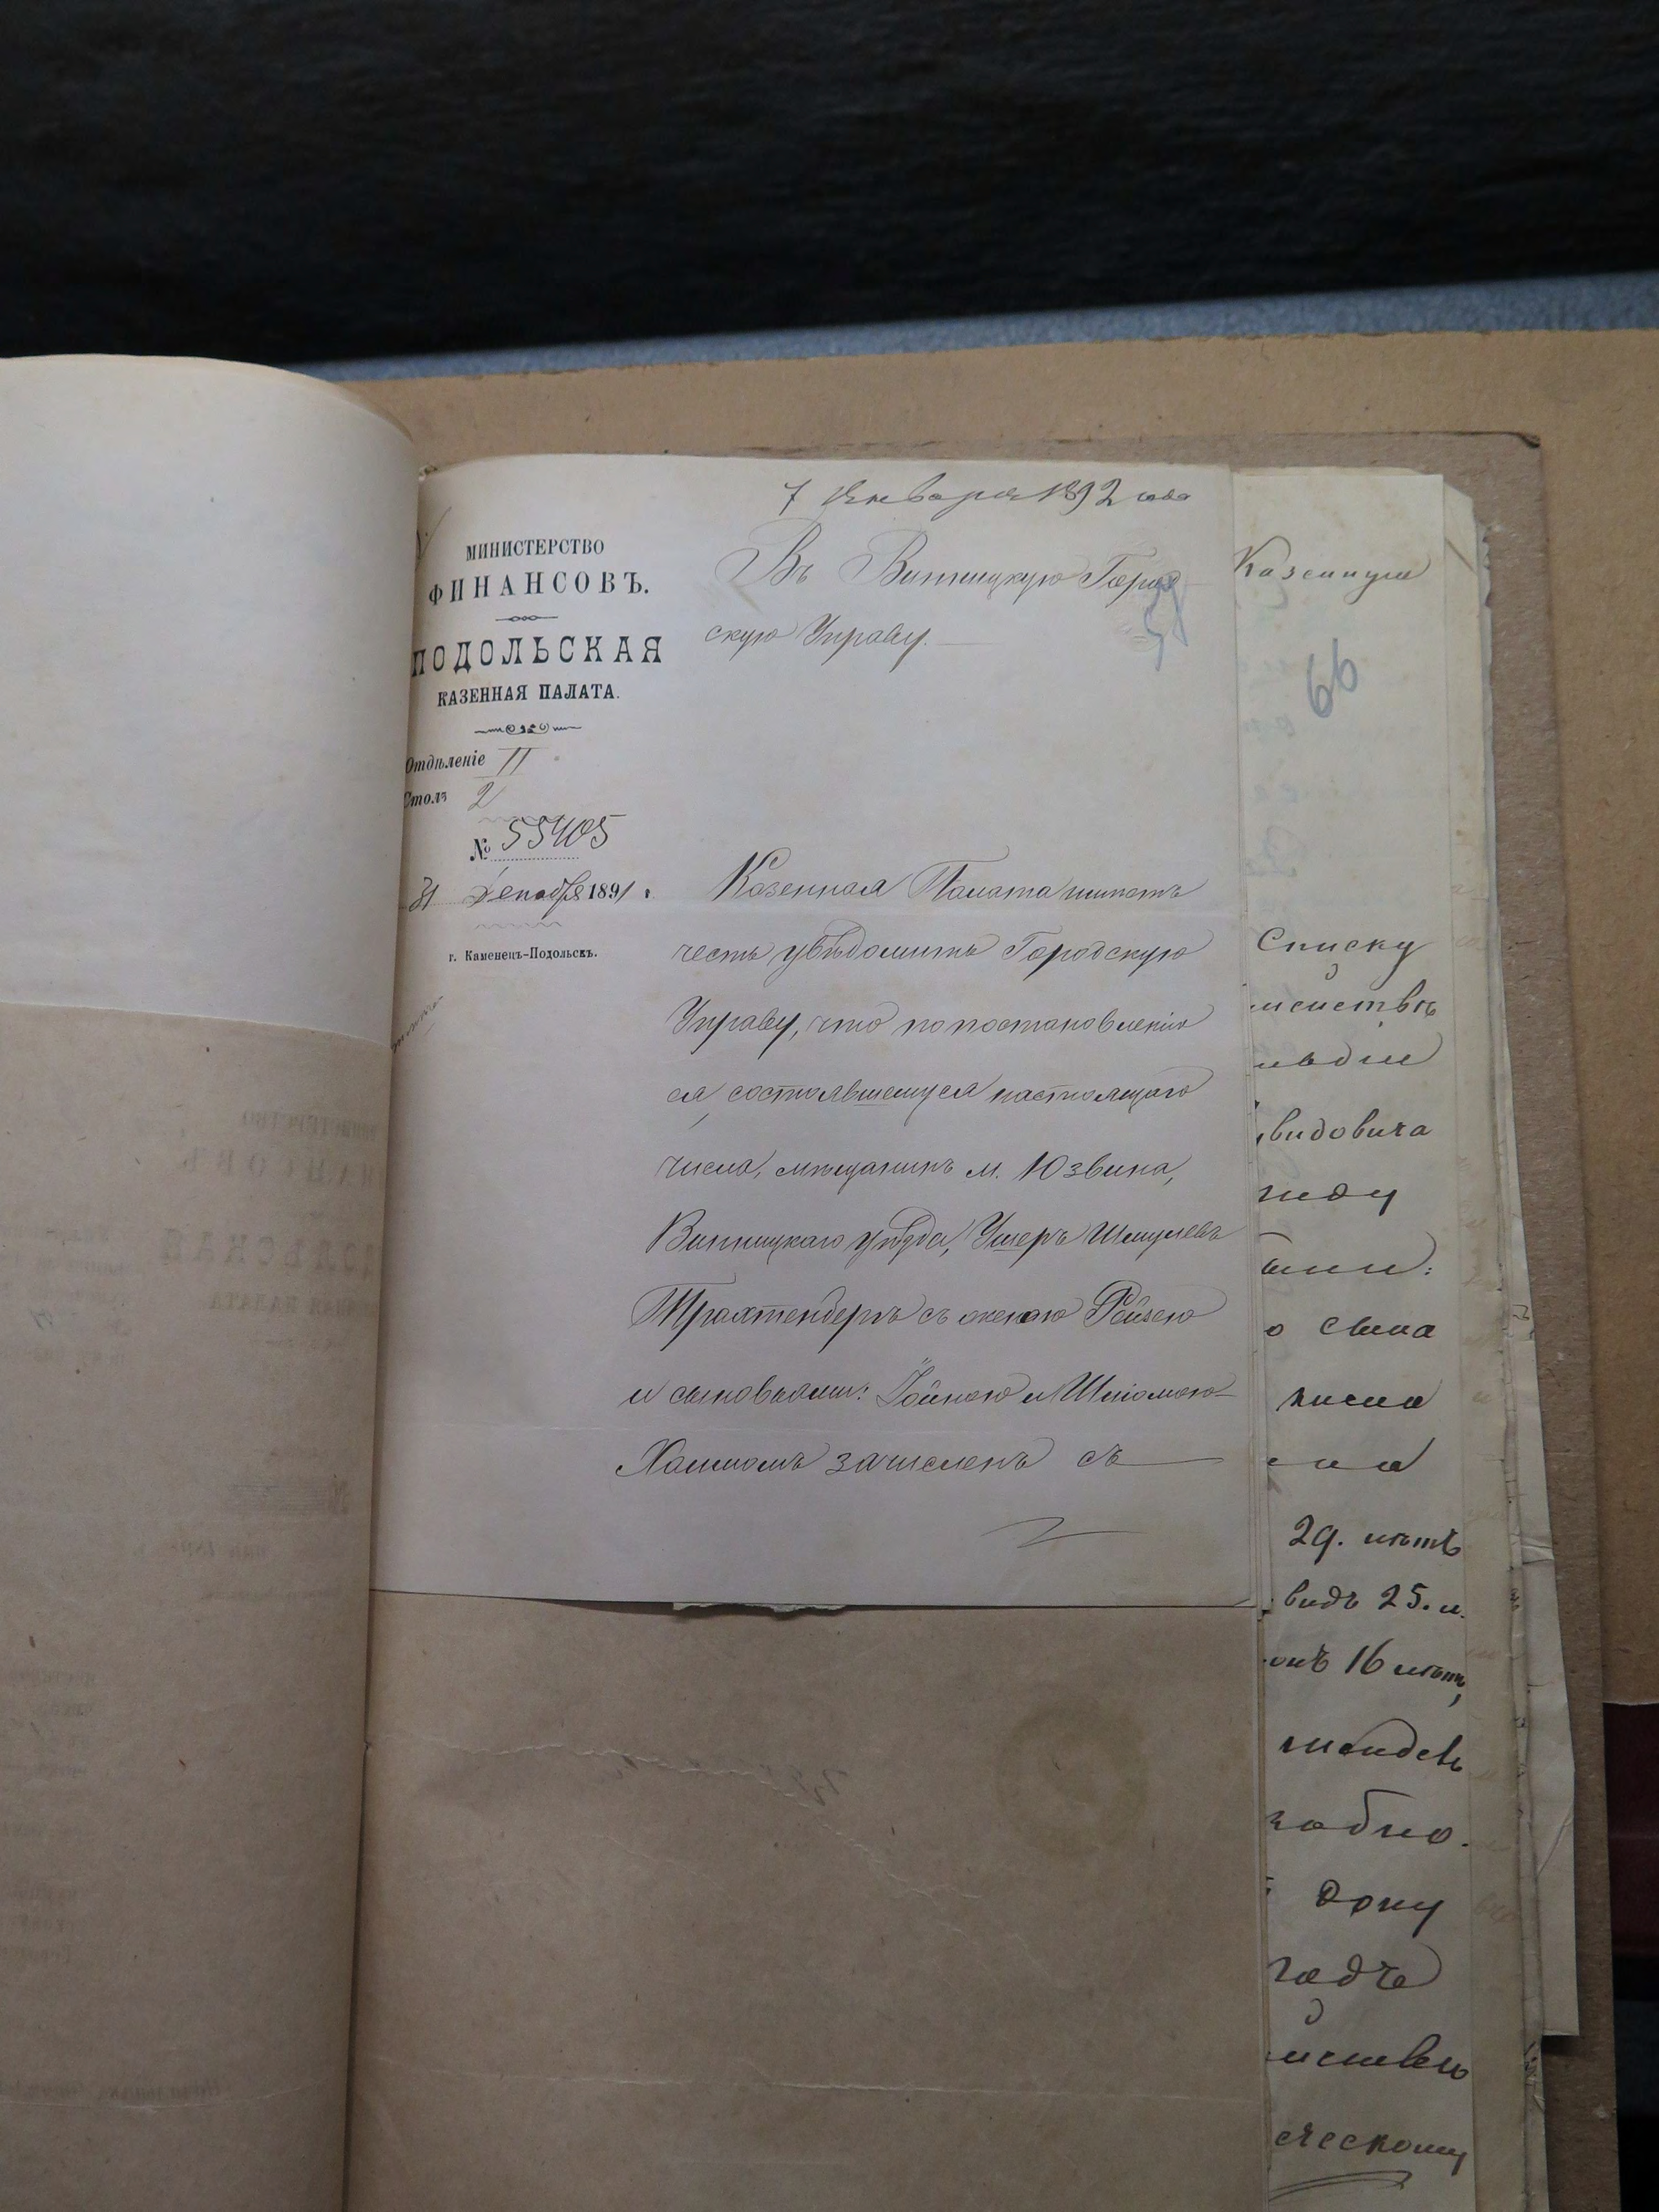 7 Января 1892 года
МИНИСТЕРСТВО
ФИНАНСОВЪ.
ПОДОЛЬСКАЯ
КАЗЕННАЯ ПАЛАТА.
Отдѣленіе II
Столъ 2
№ 55405
31 Декабря 1891 г.
г. Каменецъ-Подольскъ.
Въ Винницкую Город
скую Управу.
Казенная Палата имѣетъ
честь увѣдомить Городскую
Управу, что по постановленію
ея, состоявшемуся настоящаго
числа, мѣщанинъ м. Юзвина,
Винницкаго уѣзда, Ушеръ Шмулевъ
Трахтенберъ съ женою Ройзею
и сыновьями: Іойною и Шліомою-
Хаимомъ зачисленъ съ
Казенную
66
Списку
мействѣ
видовича
жду
о сына
29. лѣтъ
видъ 25. л.
онъ 16 лѣтъ,
годъ
ческому